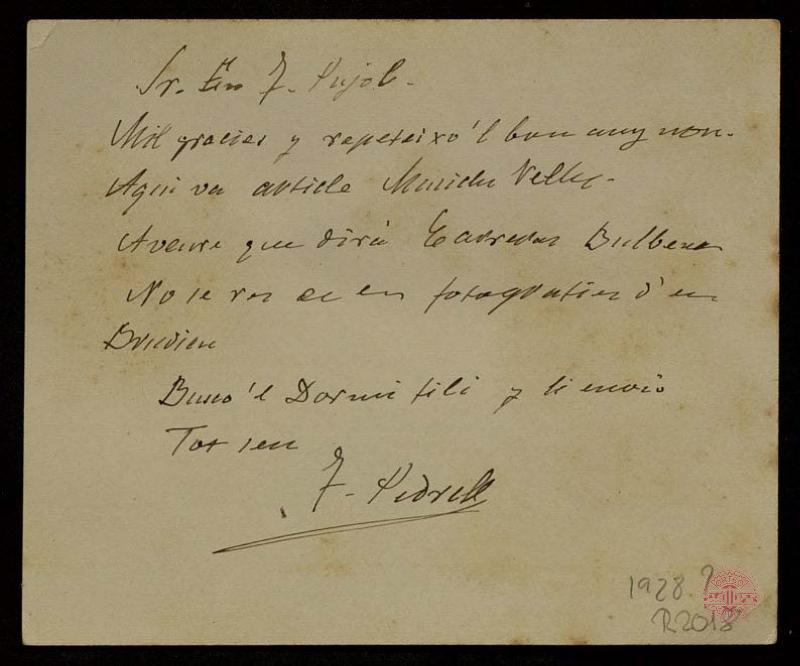 Sr. En F. Pujol.
Mil gracies y repeteixo'l bon any nou.
Aqui va article Musichs Vells.
Aveure que dirà Bulbena
No se res de les fotografies d'en
Brudieu
Busco'l Dormi fili y li envio
Tot seu
F. Pedrell
1928?
R2018